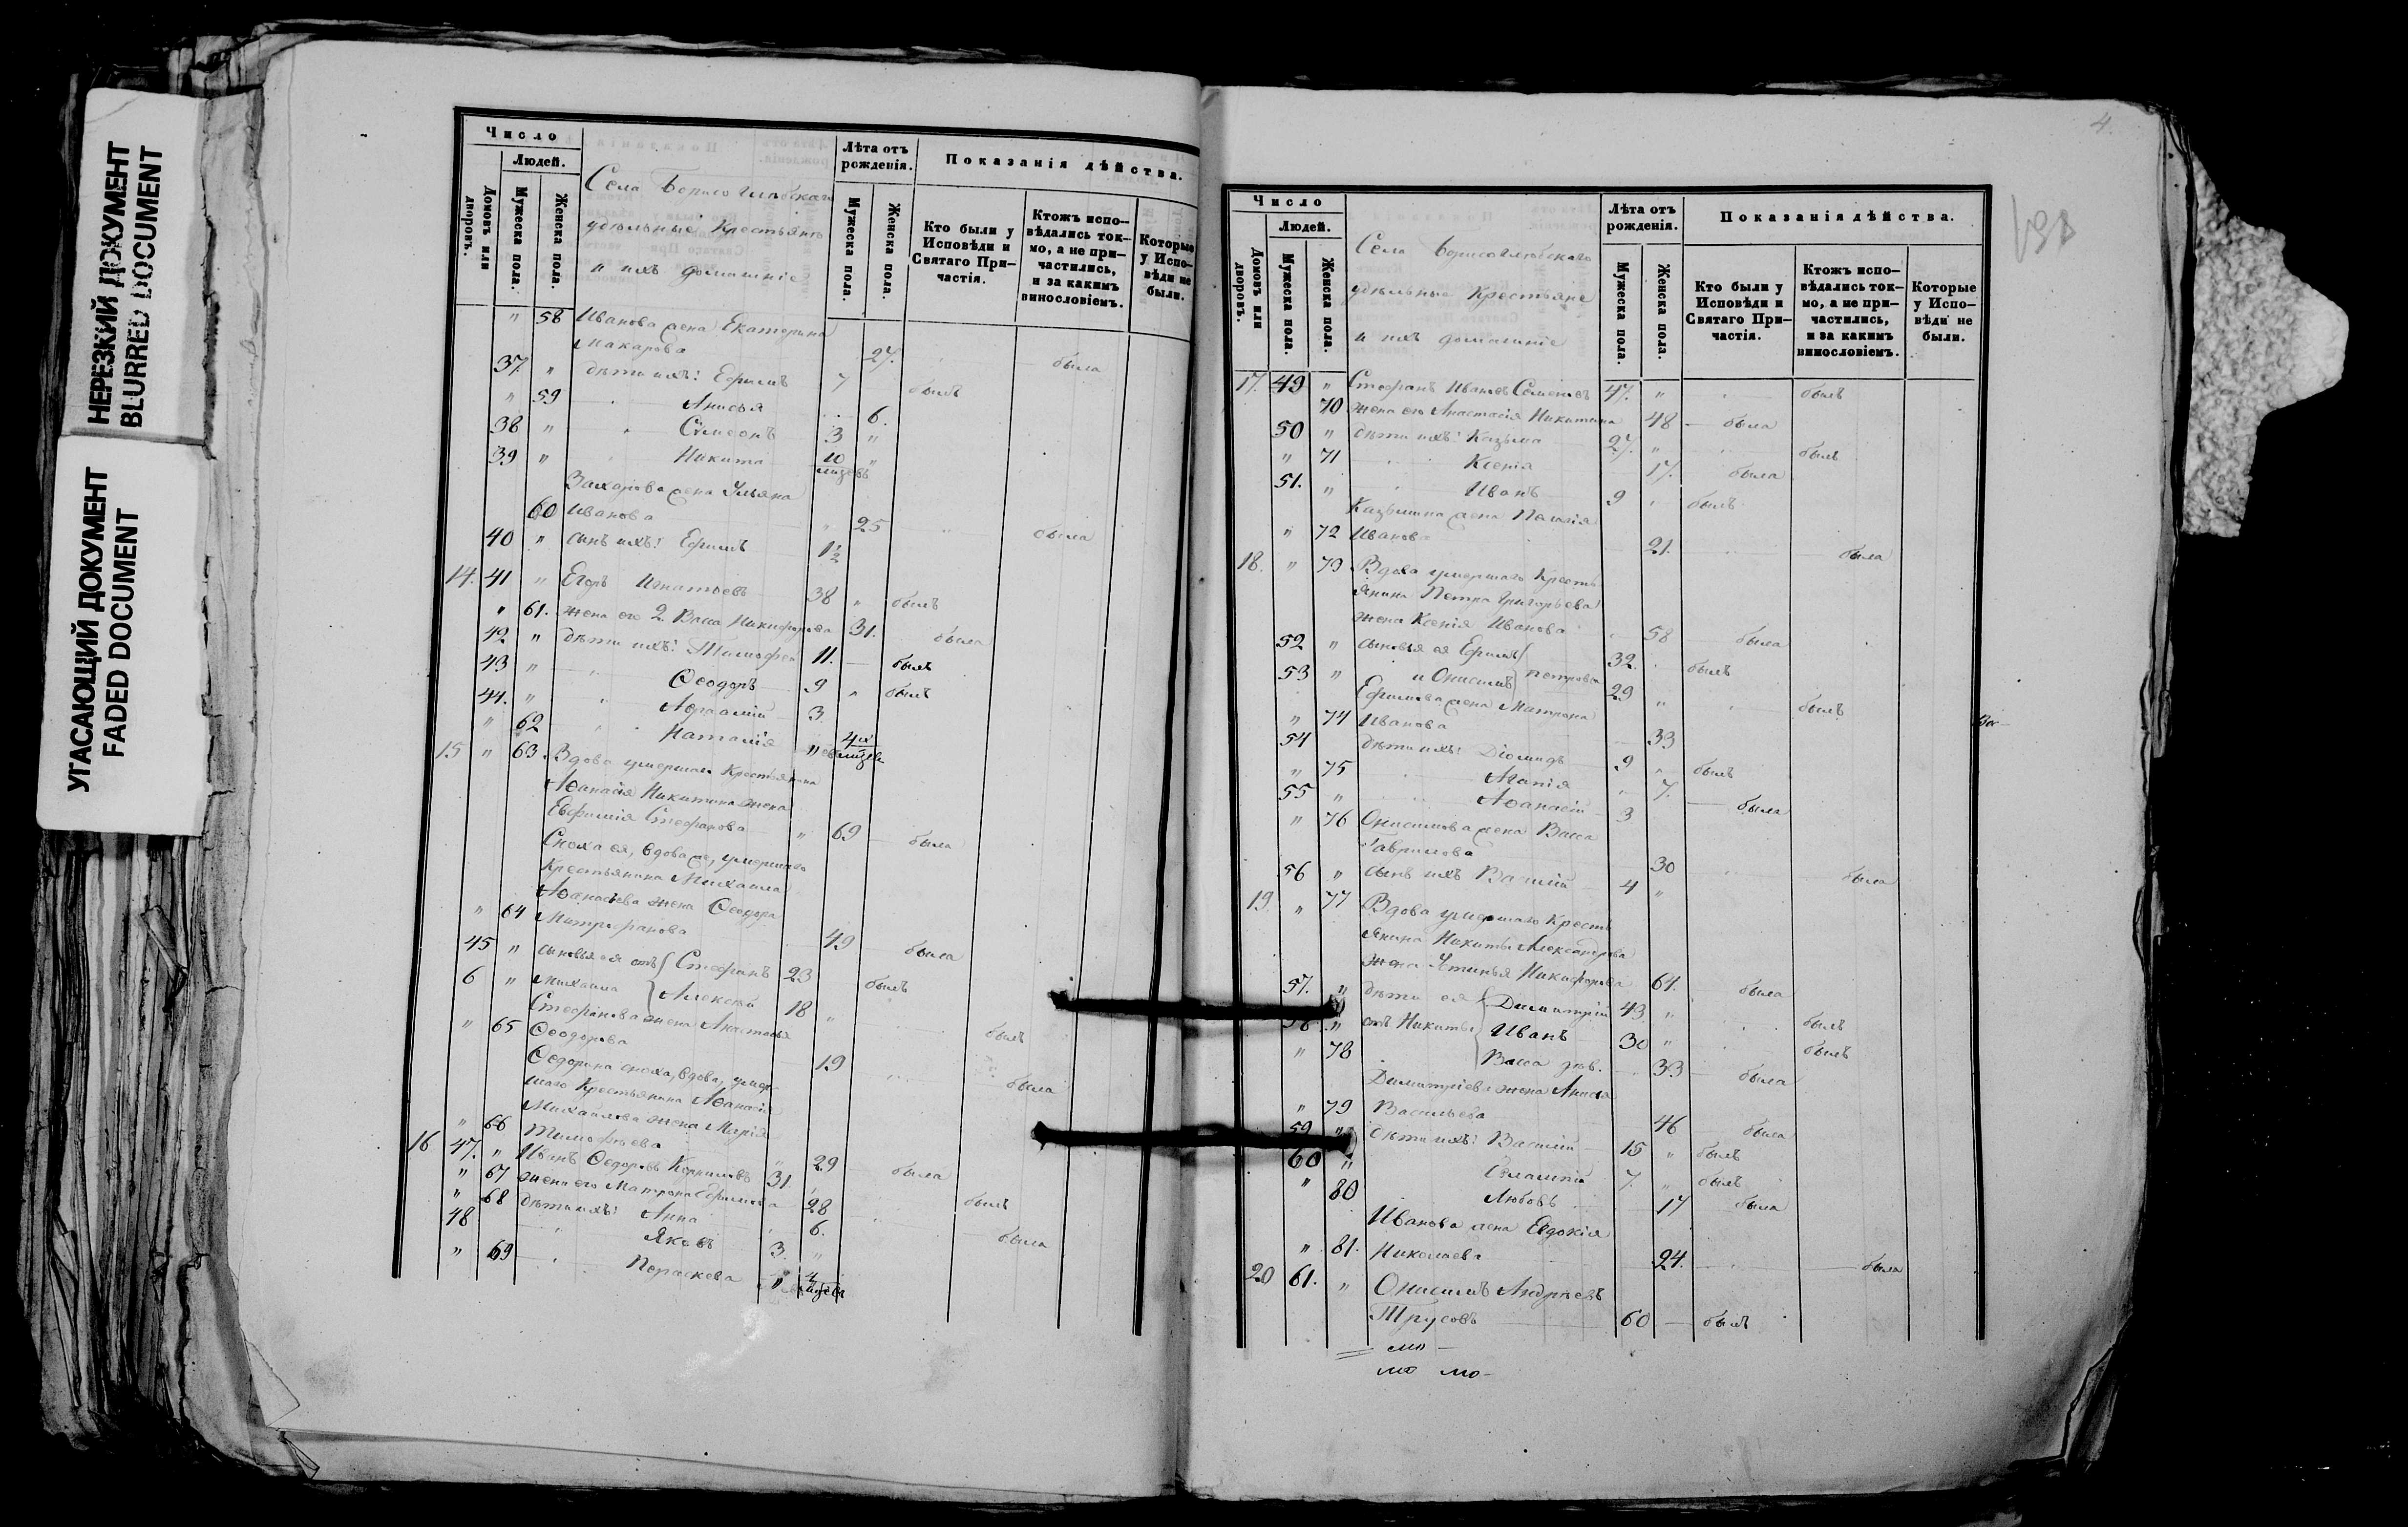 НЕРЕЗКИЙ ДОКУМЕНТ
BLURRED DOCUMENT
УГАСАЮЩИЙ ДОКУМЕНТ
FADED DOCUMENT
Число
Людей.
Домовъ или дворовъ.
Мужеска пола.
Женска пола.
Села Борисоглѣбскаго
удѣльные Крестьяне
и ихъ домашніе
Лѣта отъ рожденія.
Мужеска пола.
Женска пола.
Показанія дѣйства.
Кто были у Исповѣди и Святаго При-
частія.
Ктожъ испо-
вѣдались ток-
мо, а не при-
частились,
и за какимъ
винословіемъ.
Которые
у Испо-
вѣди не
были.
" 58 Иванова жена Екатерина
Макарова 27. была
37. " дѣти ихъ: Ефимъ 7 былъ
" 59 Анисья 6.
38 " Симеонъ 3 "
39 " Никита 10 "
Захарова жена Ульяна
60 Иванова " 25 была
40 " сынъ ихъ: Ефимъ 1½
14. 41 " Егоръ Игнатьевъ 38 " былъ
" 61. жена его 2. Васса Никифорова 31. была
42 " дѣти ихъ: Тимофей 11. былъ
43 " Ѳеодоръ 9 " былъ
44. " 3.
" 62 Наталія "
15 " 63. Вдова умершаго Крестьянина
Аѳанасія Никитина жена
Евфимія Стефанова " 69 была
Сноха ея, вдова же, умершаго
Крестьянина Михаила
Аѳанасьева жена Ѳеодора
" 64 Митрофанова 49 была
45 " сыновья ея отъ Стефанъ 23 былъ
6 " Михаила Алексѣй 18 " былъ
Стефанова жена Анастасія
" 65 Ѳеодорова 19 была
Ѳедорина сноха, вдова, умер-
шаго Крестьянина Аѳанасія
Михайлова жена Марія
" 66 Тимофѣева " 29 была
16 47. " Иванъ Ѳедоровъ Корниловъ 31 былъ
" 67 жена его Матрона Ефимова 28 была
" 68 дѣти ихъ: Анна 6.
48 Яковъ 3. "
" 69 Параскева "
4.
Число
Людей.
Домовъ или дворовъ.
Мужеска пола.
Женска пола.
Села Борисоглѣбскаго
удѣльные Крестьяне
и ихъ домашніе
Лѣта отъ рожденія.
Мужеска пола.
Женска пола.
Показанія дѣйства.
Кто были у
Исповѣди и
Святаго При-
частія.
Ктожъ испо-
вѣдались ток-
мо, а не при-
частились,
и за какимъ
винословіемъ.
Которые
у Испо-
вѣди не
были.
17. 49 " Стефанъ Ивановъ Семеновъ 47. " былъ
70 жена его Анастасія Никитина 48 была
50 " дѣти ихъ: Казьма 27. " былъ
" 71 Ксенія 17. была
51. " Иванъ 9 былъ
Казьмина жена Пелагія
" 72 Иванова 21. была
18. " 73 Вдова умершаго Кресть
янина Петра Григорьева
жена Ксенія Иванова 58 была
52 " сыновья ея Ефимъ 32. былъ
53 " и Онисимъ Петровы 29 " былъ
Ефимова жена Матрона
" 74 Иванова 33
54 дѣти ихъ: Діомидъ 9 " былъ
" 75 Агапія 7. была
55 " Аѳанасій 3
" 76 Онисимова жена Васса
Гаврилова 30 была
56 " сынъ ихъ Василій 4 "
19. " 77 Вдова умершаго Кресть
янина Никиты Александрова
жена Устинья Никифорова 61. была
57. " дѣти ея Димитрій 43 " былъ
58 " отъ Никиты Иванъ 30 " былъ
" 78 Васса дѣв. 33 была
Димитріева жена Анисья
" 79 Васильева 46 была
59 " дѣти ихъ: Василій 15 " былъ
60 " 7. " былъ
" 80 Любовь 17 была
Иванова жена Евдокія
" 81. Николаева 24. была
20 61. " Онисимъ Андреевъ
Трусовъ 60 былъ